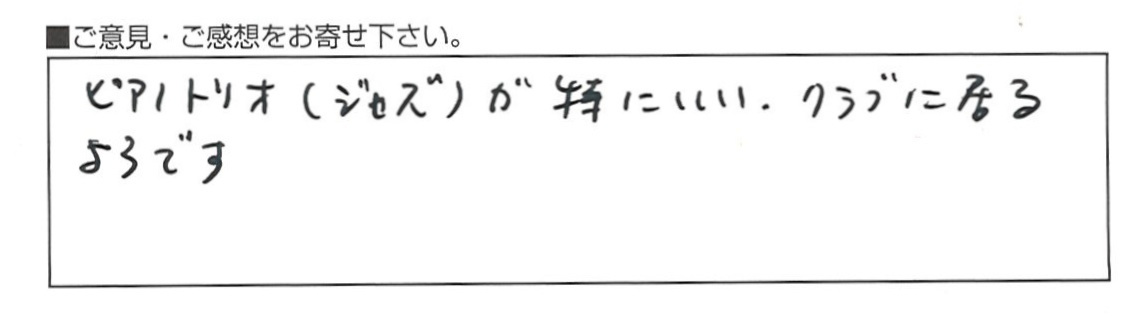 ■ご意見・ご感想をお寄せ下さい。
ピアノトリオ(ジャズ)が特にいい.クラブに居る
ようです